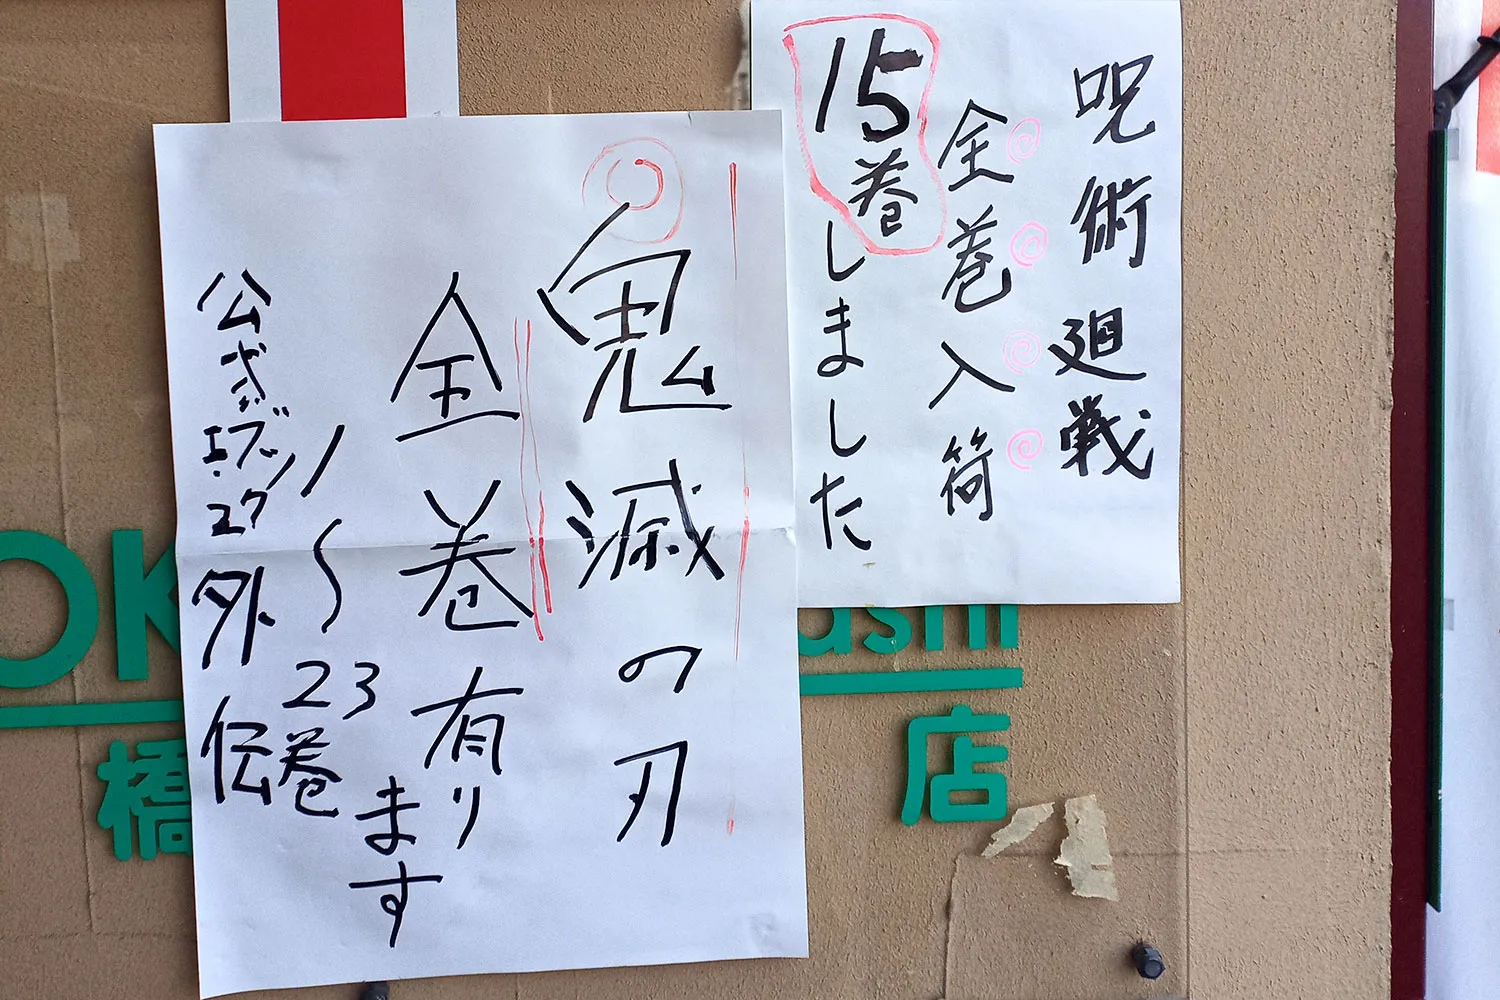 呪術廻戦
全巻入荷
15巻しました
鬼滅の刃
全巻有ります
1〜23巻
公式
外伝
OK
ashi
橋
店